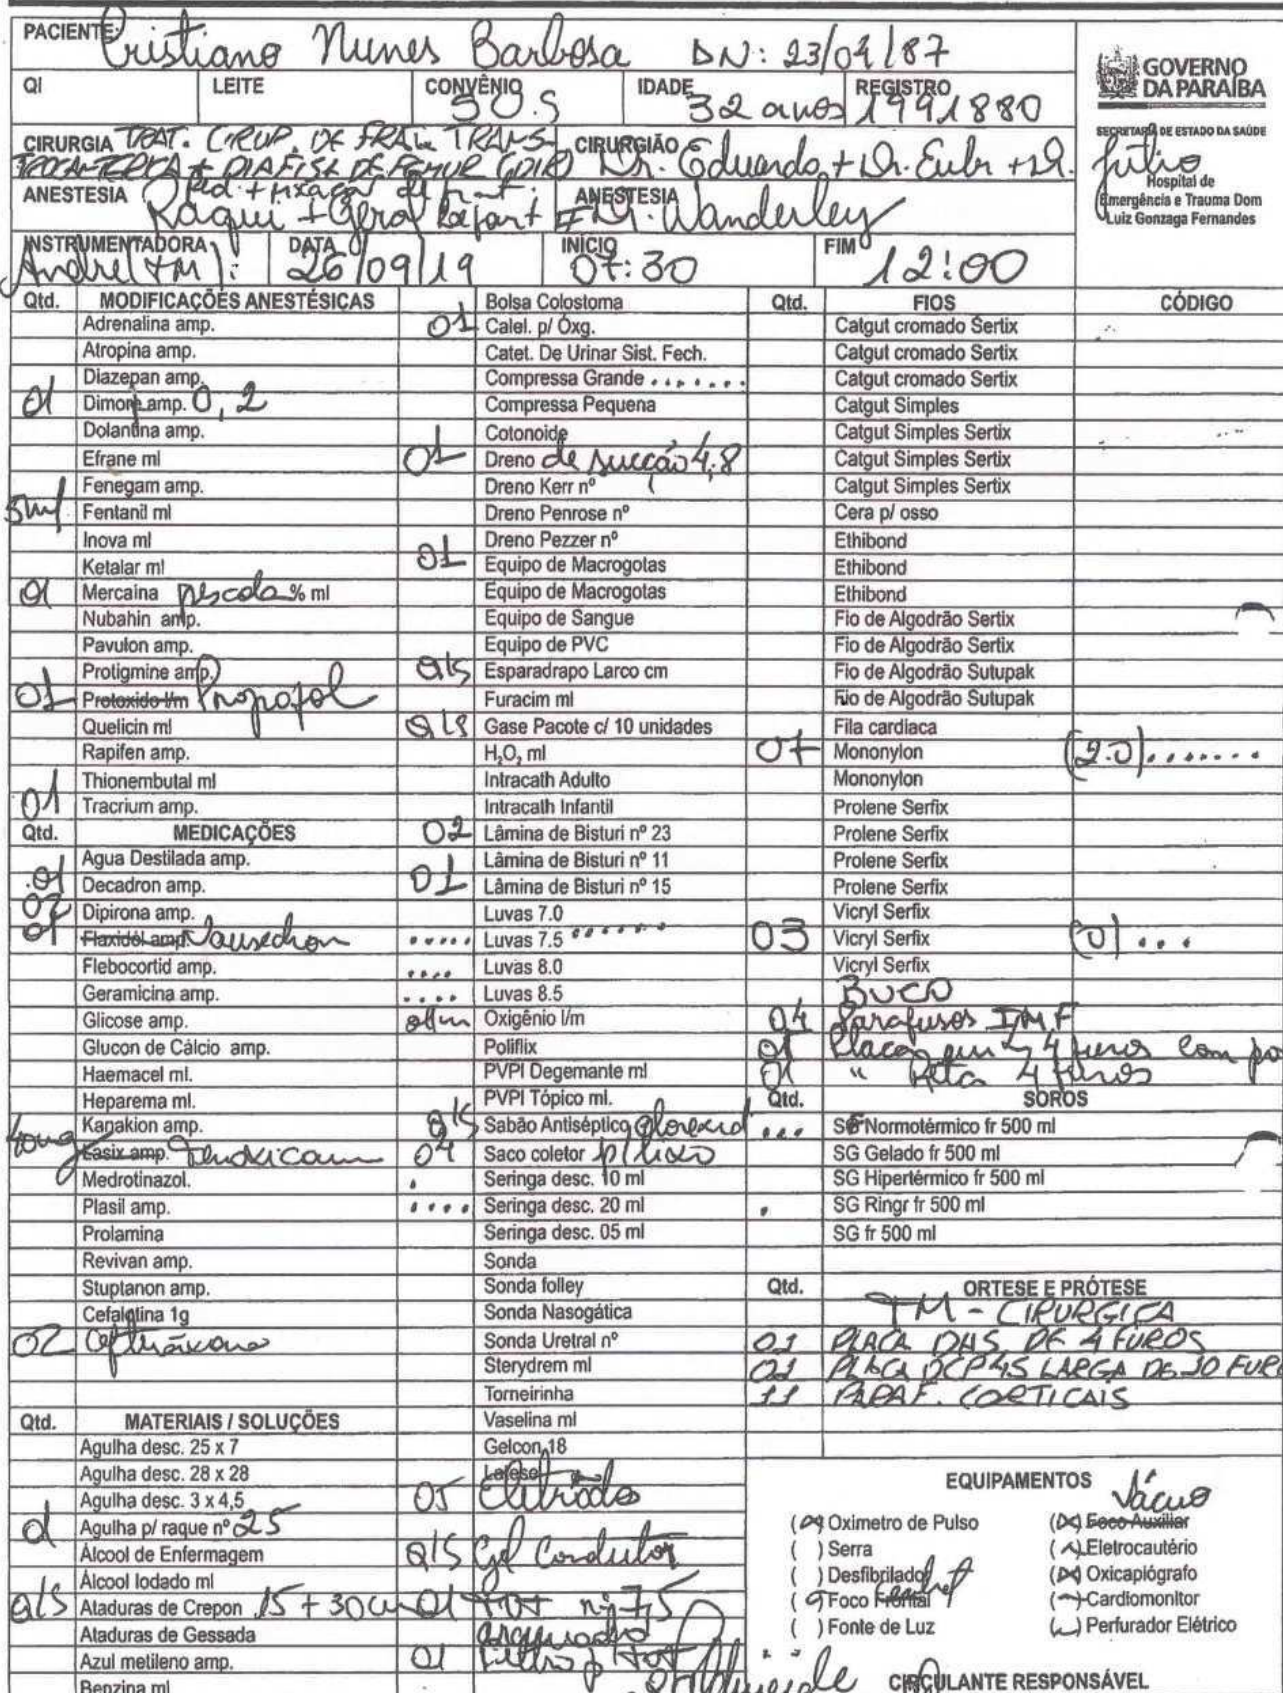 PACIENTE: Cristiano Nunes Barbosa DN: 23/04/87
GOVERNO
DA PARAÍBA
SECRETARIA DE ESTADO DA SAÚDE
Hospital de
Emergência e Trauma Dom
Luiz Gonzaga Fernandes
QI LEITE CONVÊNIO SUS IDADE 32 anos REGISTRO 1991880
CIRURGIA TRAT. CIRUR. DE FRAT. TRANS-
TROCANTERICA + DIAFISE DE FEMUR (DIR)
CIRURGIÃO Dr. Eduardo + Dr. Eulr + Dr. Júlio
Red. + fixação de frat. Lefort
ANESTESIA Raqui + Geral ANESTESIA Dr. Wanderley
INSTRUMENTADORA André (TM): DATA 26/09/19 INÍCIO 07:30 FIM 12:00
Qtd. MODIFICAÇÕES ANESTÉSICAS
Adrenalina amp.
Atropina amp.
Diazepan amp.
01 Dimorf amp. 0,2
Dolantina amp.
Efrane ml
Fenegam amp.
5ml Fentanil ml
Inova ml
Ketalar ml
01 Mercaina pesada % ml
Nubahin amp.
Pavulon amp.
Protigmine amp.
01 Protoxido l/m Propofol
Quelicin ml
Rapifen amp.
Thionembutal ml
01 Tracrium amp.
Qtd. MEDICAÇÕES
Agua Destilada amp.
01 Decadron amp.
02 Dipirona amp.
01 Flaxidol amp. Nausedron
Flebocortid amp.
Geramicina amp.
Glicose amp.
Glucon de Cálcio amp.
Haemacel ml.
Heparema ml.
Kanakion amp.
40mg Lasix amp. Tenoxicam
Medrotinazol.
Plasil amp.
Prolamina
Revivan amp.
Stuptanon amp.
Cefalotina 1g
02 Ceftriaxona
Qtd. MATERIAIS / SOLUÇÕES
Agulha desc. 25 x 7
Agulha desc. 28 x 28
Agulha desc. 3 x 4,5
01 Agulha p/ raque nº 25
Álcool de Enfermagem
Álcool Iodado ml
Q/S Ataduras de Crepon 15 + 30cm
Ataduras de Gessada
Azul metileno amp.
Benzina ml
Bolsa Colostoma
01 Catel. p/ Óxg.
Catet. De Urinar Sist. Fech.
Compressa Grande .......
Compressa Pequena
Cotonoide
01 Dreno de sucção 4.8
Dreno Kerr nº
Dreno Penrose nº
Dreno Pezzer nº
01 Equipo de Macrogotas
Equipo de Macrogotas
Equipo de Sangue
Equipo de PVC
Q/S Esparadrapo Larco cm
Furacim ml
Q/S Gase Pacote c/ 10 unidades
H₂O₂ ml
Intracath Adulto
Intracath Infantil
02 Lâmina de Bisturi nº 23
Lâmina de Bisturi nº 11
01 Lâmina de Bisturi nº 15
Luvas 7.0
..... Luvas 7.5 ......
.... Luvas 8.0
.... Luvas 8.5
Oxigênio l/m
Poliflix
PVPI Degemante ml
PVPI Tópico ml.
Q/S Sabão Antiséptico
04 Saco coletor p/ lixo
. Seringa desc. 10 ml
.... Seringa desc. 20 ml
Seringa desc. 05 ml
Sonda
Sonda folley
Sonda Nasogática
Sonda Uretral nº
Sterydrem ml
Torneirinha
Vaselina ml
Gelcon 18
05 Eletrodos
Q/S Gel Condutor
01 Tot nº 7,5
aramado
01 Filtro p/ Tot
Qtd. FIOS CÓDIGO
Catgut cromado Sertix
Catgut cromado Sertix
Catgut cromado Sertix
Catgut Simples
Catgut Simples Sertix
Catgut Simples Sertix
Catgut Simples Sertix
Cera p/ osso
Ethibond
Ethibond
Ethibond
Fio de Algodrão Sertix
Fio de Algodrão Sertix
Fio de Algodrão Sutupak
Fio de Algodrão Sutupak
Fila cardiaca
07 Mononylon (2.0) .......
Mononylon
Prolene Serfix
Prolene Serfix
Prolene Serfix
Prolene Serfix
Vicryl Serfix
03 Vicryl Serfix (0) ...
Vicryl Serfix
BUCO
04 Parafusos IMF
01 Placa em L 4 furos com
01 " Reta 4 furos
Qtd. SOROS
... SF Normotérmico fr 500 ml
SG Gelado fr 500 ml
SG Hipertérmico fr 500 ml
. SG Ringr fr 500 ml
SG fr 500 ml
Qtd. ORTESE E PRÓTESE
TM - CIRURGICA
01 PLACA DHS DE 4 FUROS
01 PLACA DCP 4,5 LARGA DE 10 FURO
11 PARAF. CORTICAIS
EQUIPAMENTOS Vácuo
(X) Oximetro de Pulso (X) Foco Auxiliar
( ) Serra (X) Eletrocautério
( ) Desfibrilador (X) Oxicapiógrafo
(X) Foco Frontal (X) Cardiomonitor
( ) Fonte de Luz (X) Perfurador Elétrico
CIRCULANTE RESPONSÁVEL